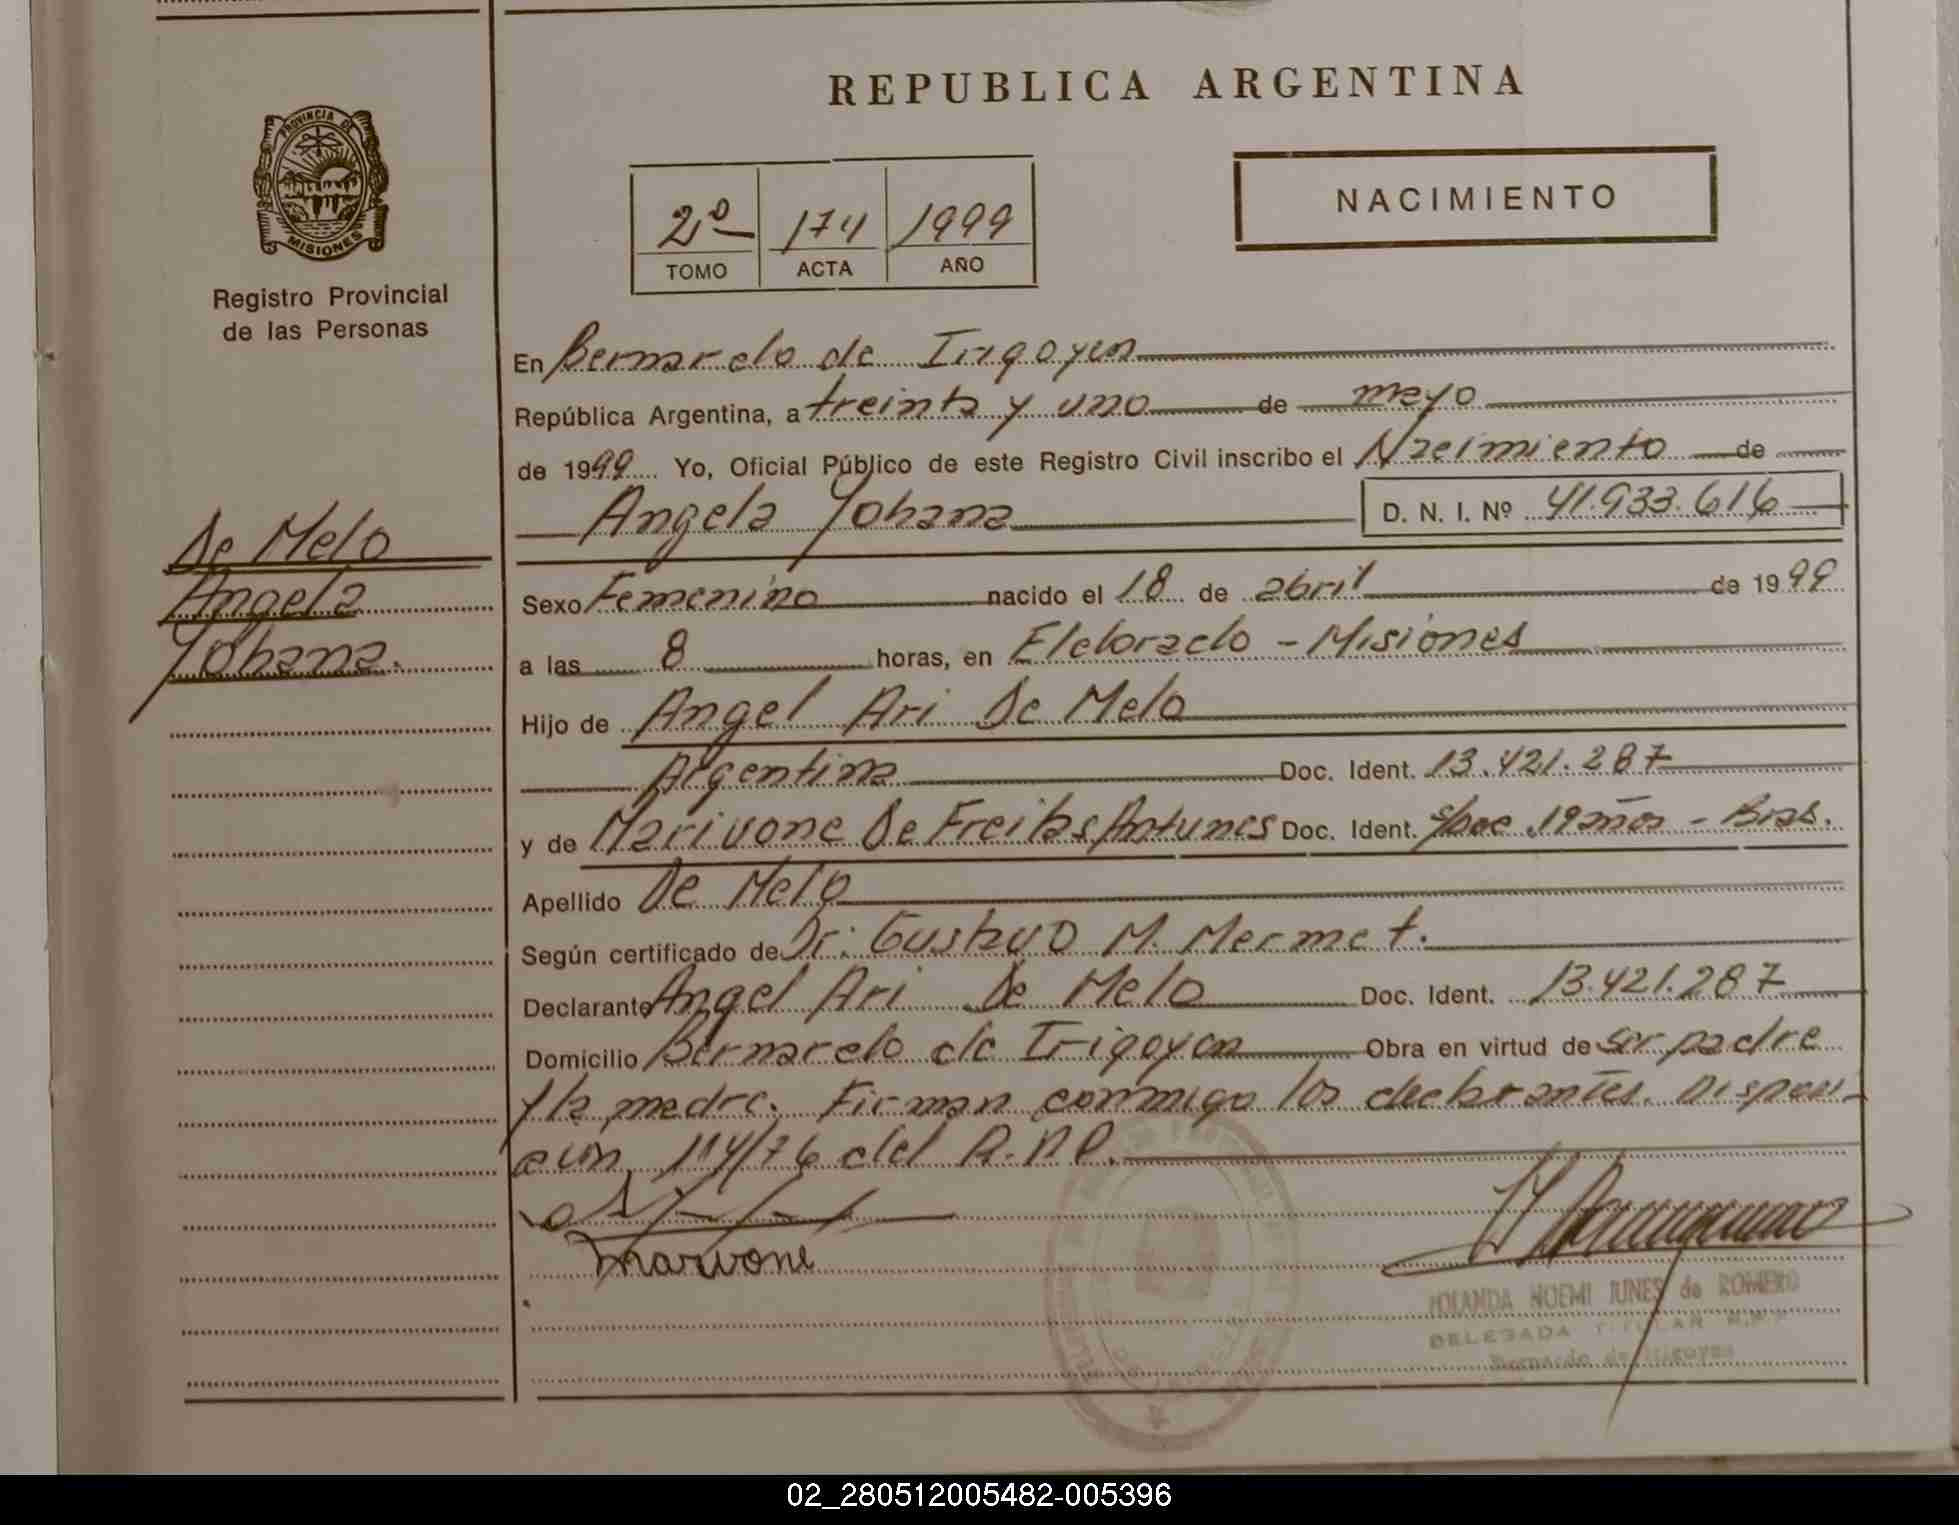 REPUBLICA ARGENTINA
PROVINCIA DE
MISIONES
Registro Provincial
de las Personas
2º 174 1999
TOMO ACTA AÑO
NACIMIENTO
En Bernardo de Irigoyen
República Argentina, a treinta y uno de mayo
de 1999 Yo, Oficial Público de este Registro Civil inscribo el Nacimiento de
Angela Yohana D. N. I. Nº 41.933.616
De Melo
Angela
Yohana.
Sexo Femenino nacido el 18 de abril de 1999
a las 8 horas, en Eldorado - Misiones
Hijo de Angel Ari De Melo
Argentina Doc. Ident. 13.421.287
y de Marivone De Freitas Antunes Doc. Ident. s/Doc 19 años - Bras.
Apellido De Melo
Según certificado de Dr: Gustavo M. Mermet.
Declarante Angel Ari De Melo Doc. Ident. 13.421.287
Domicilio Bernardo de Irigoyen Obra en virtud de ser padre
y la madre. Firman conmigo los declarantes. Disposi-
cion 114/76 del R.N.P.
marivone
YOLANDA NOEMI JUNES de ROMERO
DELEGADA TITULAR
Bernardo de Irigoyen
02_280512005482-005396